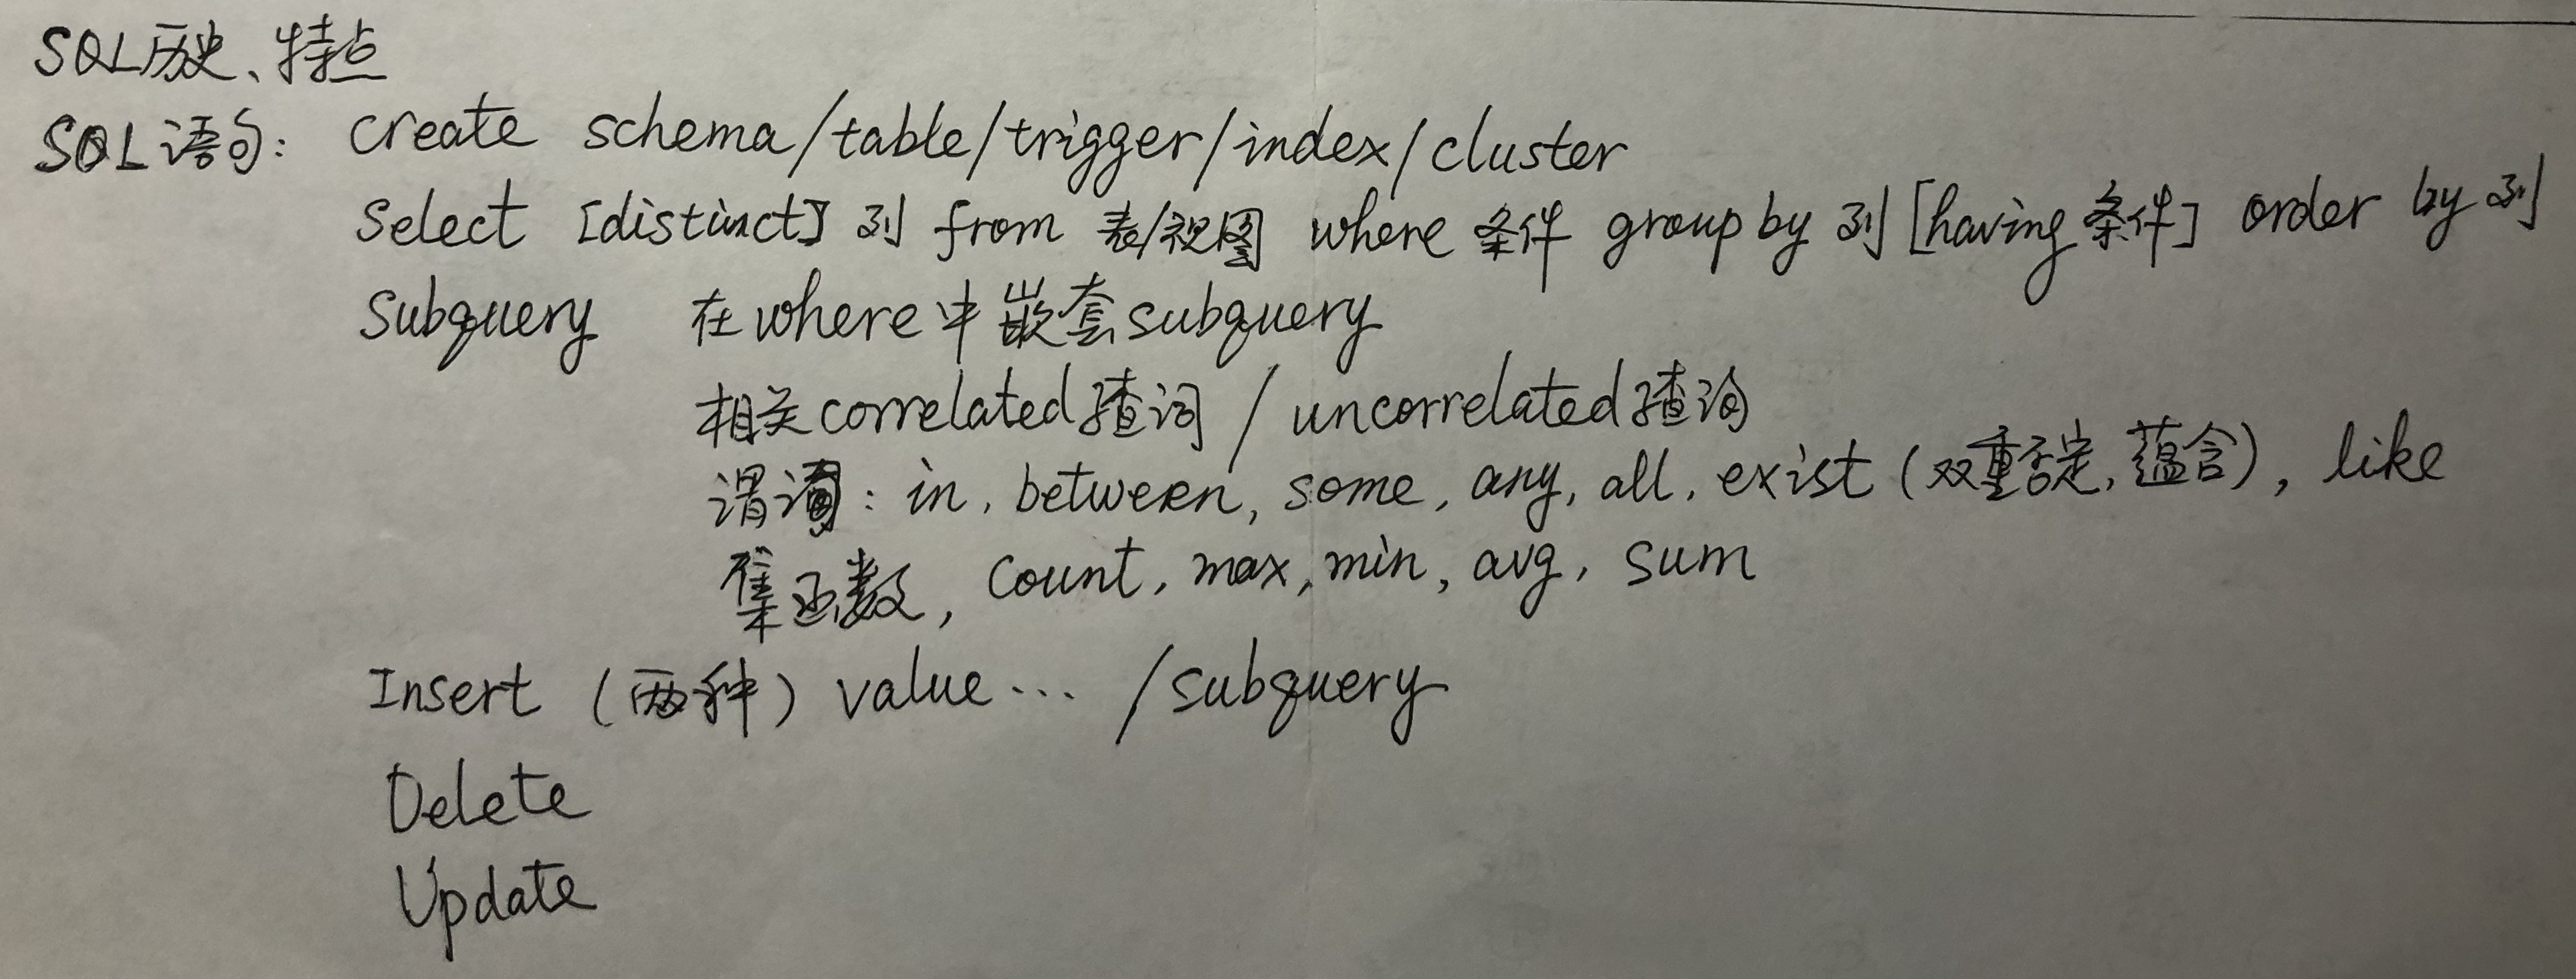 SQL历史、特点
SQL语句: create schema/table/trigger/index/cluster
Select [distinct] 列 from 表/视图 where 条件 group by 列 [having 条件] order by 列
Subquery 在where中嵌套subquery
相关correlated查询 / uncorrelated查询
谓词: in, between, some, any, all, exist (双重否定, 蕴含), like
集函数, count, max, min, avg, sum
Insert (两种) value... /subquery
Delete
Update